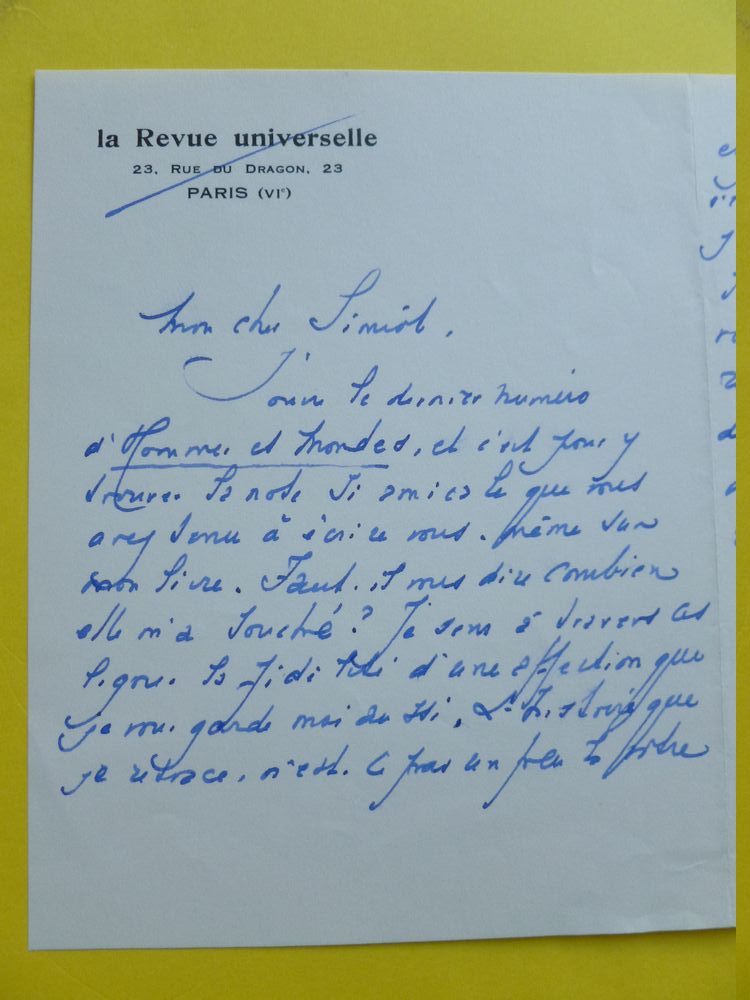 la Revue universelle
23, RUE DU DRAGON, 23
PARIS (VIe)
Mon cher Simiot,
J'ouvre le dernier numéro
d'Hommes et Mondes, et c'est pour y
trouver la note si amicale que vous
avez tenu à écrire vous-même sur
mon livre. Faut-il vous dire combien
elle m'a touché ? Je sens à travers ces
lignes la fidélité d'une affection que
je vous garde moi aussi. L'histoire que
je retrace, n'est-ce pas un peu la nôtre